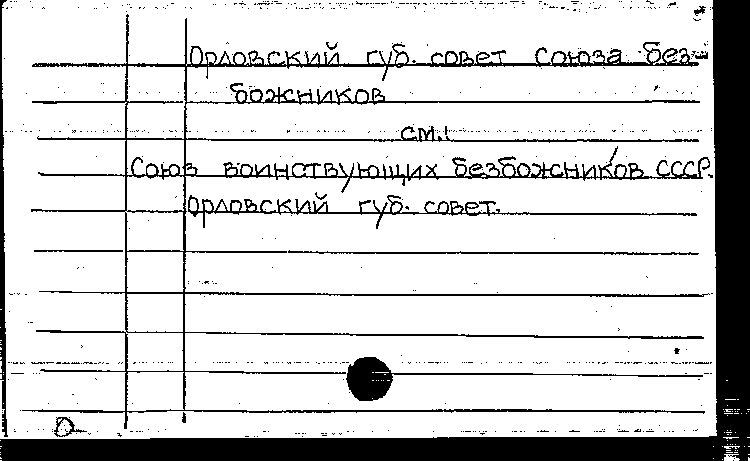 Орловский губ. совет Союза без-
божников
см.:
Союз воинствующих безбожников СССР.
Орловский губ. совет.
О